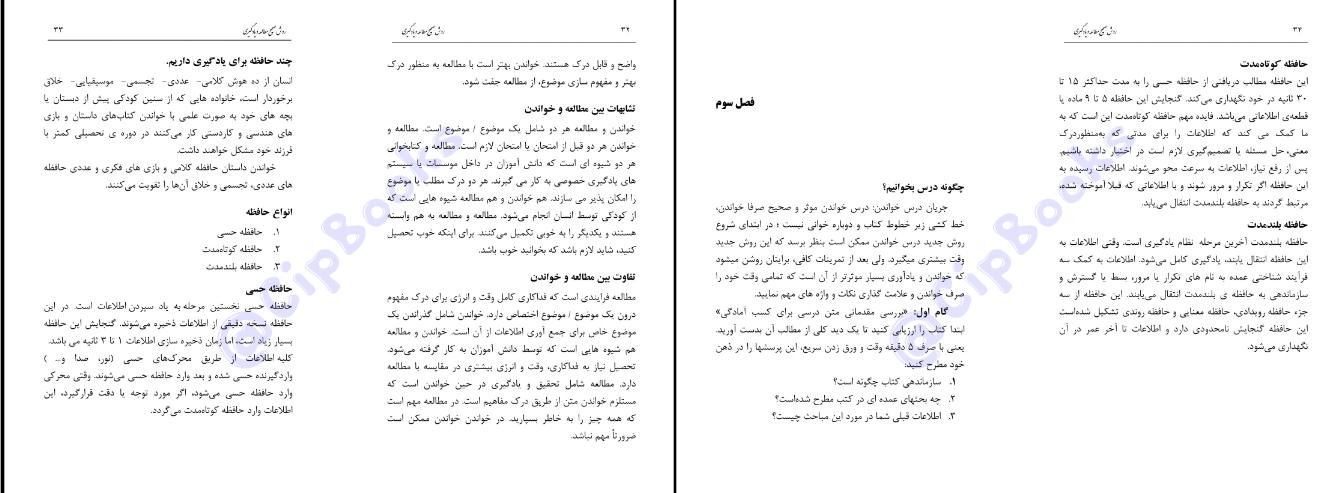 ۳۲
روش صحیح مطالعه و یادگیری
واضح و قابل درک هستند. خواندن بهتر است با مطالعه به منظور درک
بهتر و مفهوم سازی موضوع، از مطالعه جفت شود.
تشابهات بین مطالعه و خواندن
خواندن و مطالعه هر دو شامل یک موضوع / موضوع است. مطالعه و
خواندن هر دو قبل از امتحان یا امتحان لازم است. مطالعه و کتابخوانی
هر دو شیوه ای است که دانش آموزان در داخل موسسات یا سیستم
های یادگیری خصوصی به کار می گیرند. هر دو درک مطلب یا موضوع
را امکان پذیر می سازند. هم خواندن و هم مطالعه شیوه هایی است که
از کودکی توسط انسان انجام می‌شود. مطالعه و مطالعه به هم وابسته
هستند و یکدیگر را به خوبی تکمیل می‌کنند. برای اینکه خوب تحصیل
کنید، شاید لازم باشد که بخوانید خوب باشد.
تفاوت بین مطالعه و خواندن
مطالعه فرایندی است که فداکاری کامل وقت و انرژی برای درک مفهوم
درون یک موضوع / موضوع اختصاص دارد. خواندن شامل گذراندن یک
موضوع خاص برای جمع آوری اطلاعات از آن است. خواندن و مطالعه
هم شیوه هایی است که توسط دانش آموزان به کار گرفته می‌شود.
تحصیل نیاز به فداکاری، وقت و انرژی بیشتری در مقایسه با مطالعه
دارد. مطالعه شامل تحقیق و یادگیری در حین خواندن است که
مستلزم خواندن متن از طریق درک مفاهیم است. در مطالعه مهم است
که همه چیز را به خاطر بسپارید. در خواندن خواندن ممکن است
ضرورتاً مهم نباشد.
روش صحیح مطالعه و یادگیری
۳۳
چند حافظه برای یادگیری داریم.
انسان از ده هوش کلامی- عددی- تجسمی- موسیقیایی- خلاق
برخوردار است، خانواده هایی که از سنین کودکی پیش از دبستان با
بچه های خود به صورت علمی با خواندن کتاب‌های داستان و بازی
های هندسی و کاردستی کار می‌کنند در دوره ی تحصیلی کمتر با
فرزند خود مشکل خواهند داشت.
خواندن داستان حافظه کلامی و بازی های فکری و عددی حافظه
های عددی، تجسمی و خلاق آن‌ها را تقویت می‌کنند.
انواع حافظه
۱. حافظه حسی
۲. حافظه کوتاه‌مدت
۳. حافظه بلندمدت
حافظه حسی
حافظه حسی نخستین مرحله به یاد سپردن اطلاعات است. در این
حافظه نسخه دقیقی از اطلاعات ذخیره می‌شوند. گنجایش این حافظه
بسیار زیاد است، اما زمان ذخیره سازی اطلاعات ۱ تا ۳ ثانیه می باشد.
کلیه اطلاعات از طریق محرک‌های حسی (نور، صدا و... )
واردگیرنده حسی شده و بعد وارد حافظه حسی می‌شوند. وقتی محرکی
وارد حافظه حسی می‌شود، اگر مورد توجه یا دقت قرارگیرد، این
اطلاعات وارد حافظه کوتاه‌مدت می‌گردد.
۳۴
روش صحیح مطالعه و یادگیری
حافظه کوتاه‌مدت
این حافظه مطالب دریافتی از حافظه حسی را به مدت حداکثر ۱۵ تا
۳۰ ثانیه در خود نگهداری می‌کند. گنجایش این حافظه ۵ تا ۹ ماده یا
قطعه‌ی اطلاعاتی می‌باشد. فایده مهم حافظه کوتاه‌مدت این است که به
ما کمک می کند که اطلاعات را برای مدتی که به‌منظوردرک
معنی، حل مسئله یا تصمیم‌گیری لازم است در اختیار داشته باشیم.
پس از رفع نیاز، اطلاعات به سرعت محو می‌شوند. اطلاعات رسیده به
این حافظه اگر تکرار و مرور شوند و با اطلاعاتی که قبلا آموخته شده،
مرتبط گردند به حافظه بلندمدت انتقال می‌یابد.
حافظه بلندمدت
حافظه بلندمدت آخرین مرحله نظام یادگیری است. وقتی اطلاعات به
این حافظه انتقال یابند، یادگیری کامل می‌شود. اطلاعات به کمک سه
فرآیند شناختی عمده به نام های تکرار یا مرور، بسط یا گسترش و
سازماندهی به حافظه ی بلندمدت انتقال می‌یابند. این حافظه از سه
جزء حافظه رویدادی، حافظه معنایی و حافظه روندی تشکیل شده‌است
این حافظه گنجایش نامحدودی دارد و اطلاعات تا آخر عمر در آن
نگهداری می‌شود.
فصل سوم
چگونه درس بخوانیم؟
جریان درس خواندن: درس خواندن موثر و صحیح صرفا خواندن،
خط کشی زیر خطوط کتاب و دوباره خوانی نیست ؛ در ابتدای شروع
روش جدید درس خواندن ممکن است بنظر برسد که این روش جدید
وقت بیشتری میگیرد. ولی بعد از تمرینات کافی، برایتان روشن میشود
که خواندن و یادآوری بسیار موثرتر از آن است که تمامی وقت خود را
صرف خواندن و علامت گذاری نکات و واژه های مهم نمایید.
گام اول: «بررسی مقدماتی متن درسی برای کسب آمادگی»
ابتدا کتاب را ارزیابی کنید تا یک دید کلی از مطالب آن بدست آورید.
یعنی با صرف ۵ دقیقه وقت و ورق زدن سریع، این پرسشها را در ذهن
خود مطرح کنید:
۱. سازماندهی کتاب چگونه است؟
۲. چه بحثهای عمده ای در کتب مطرح شده‌است؟
۳. اطلاعات قبلی شما در مورد این مباحث چیست؟
@ClipBooks
@ClipBooks